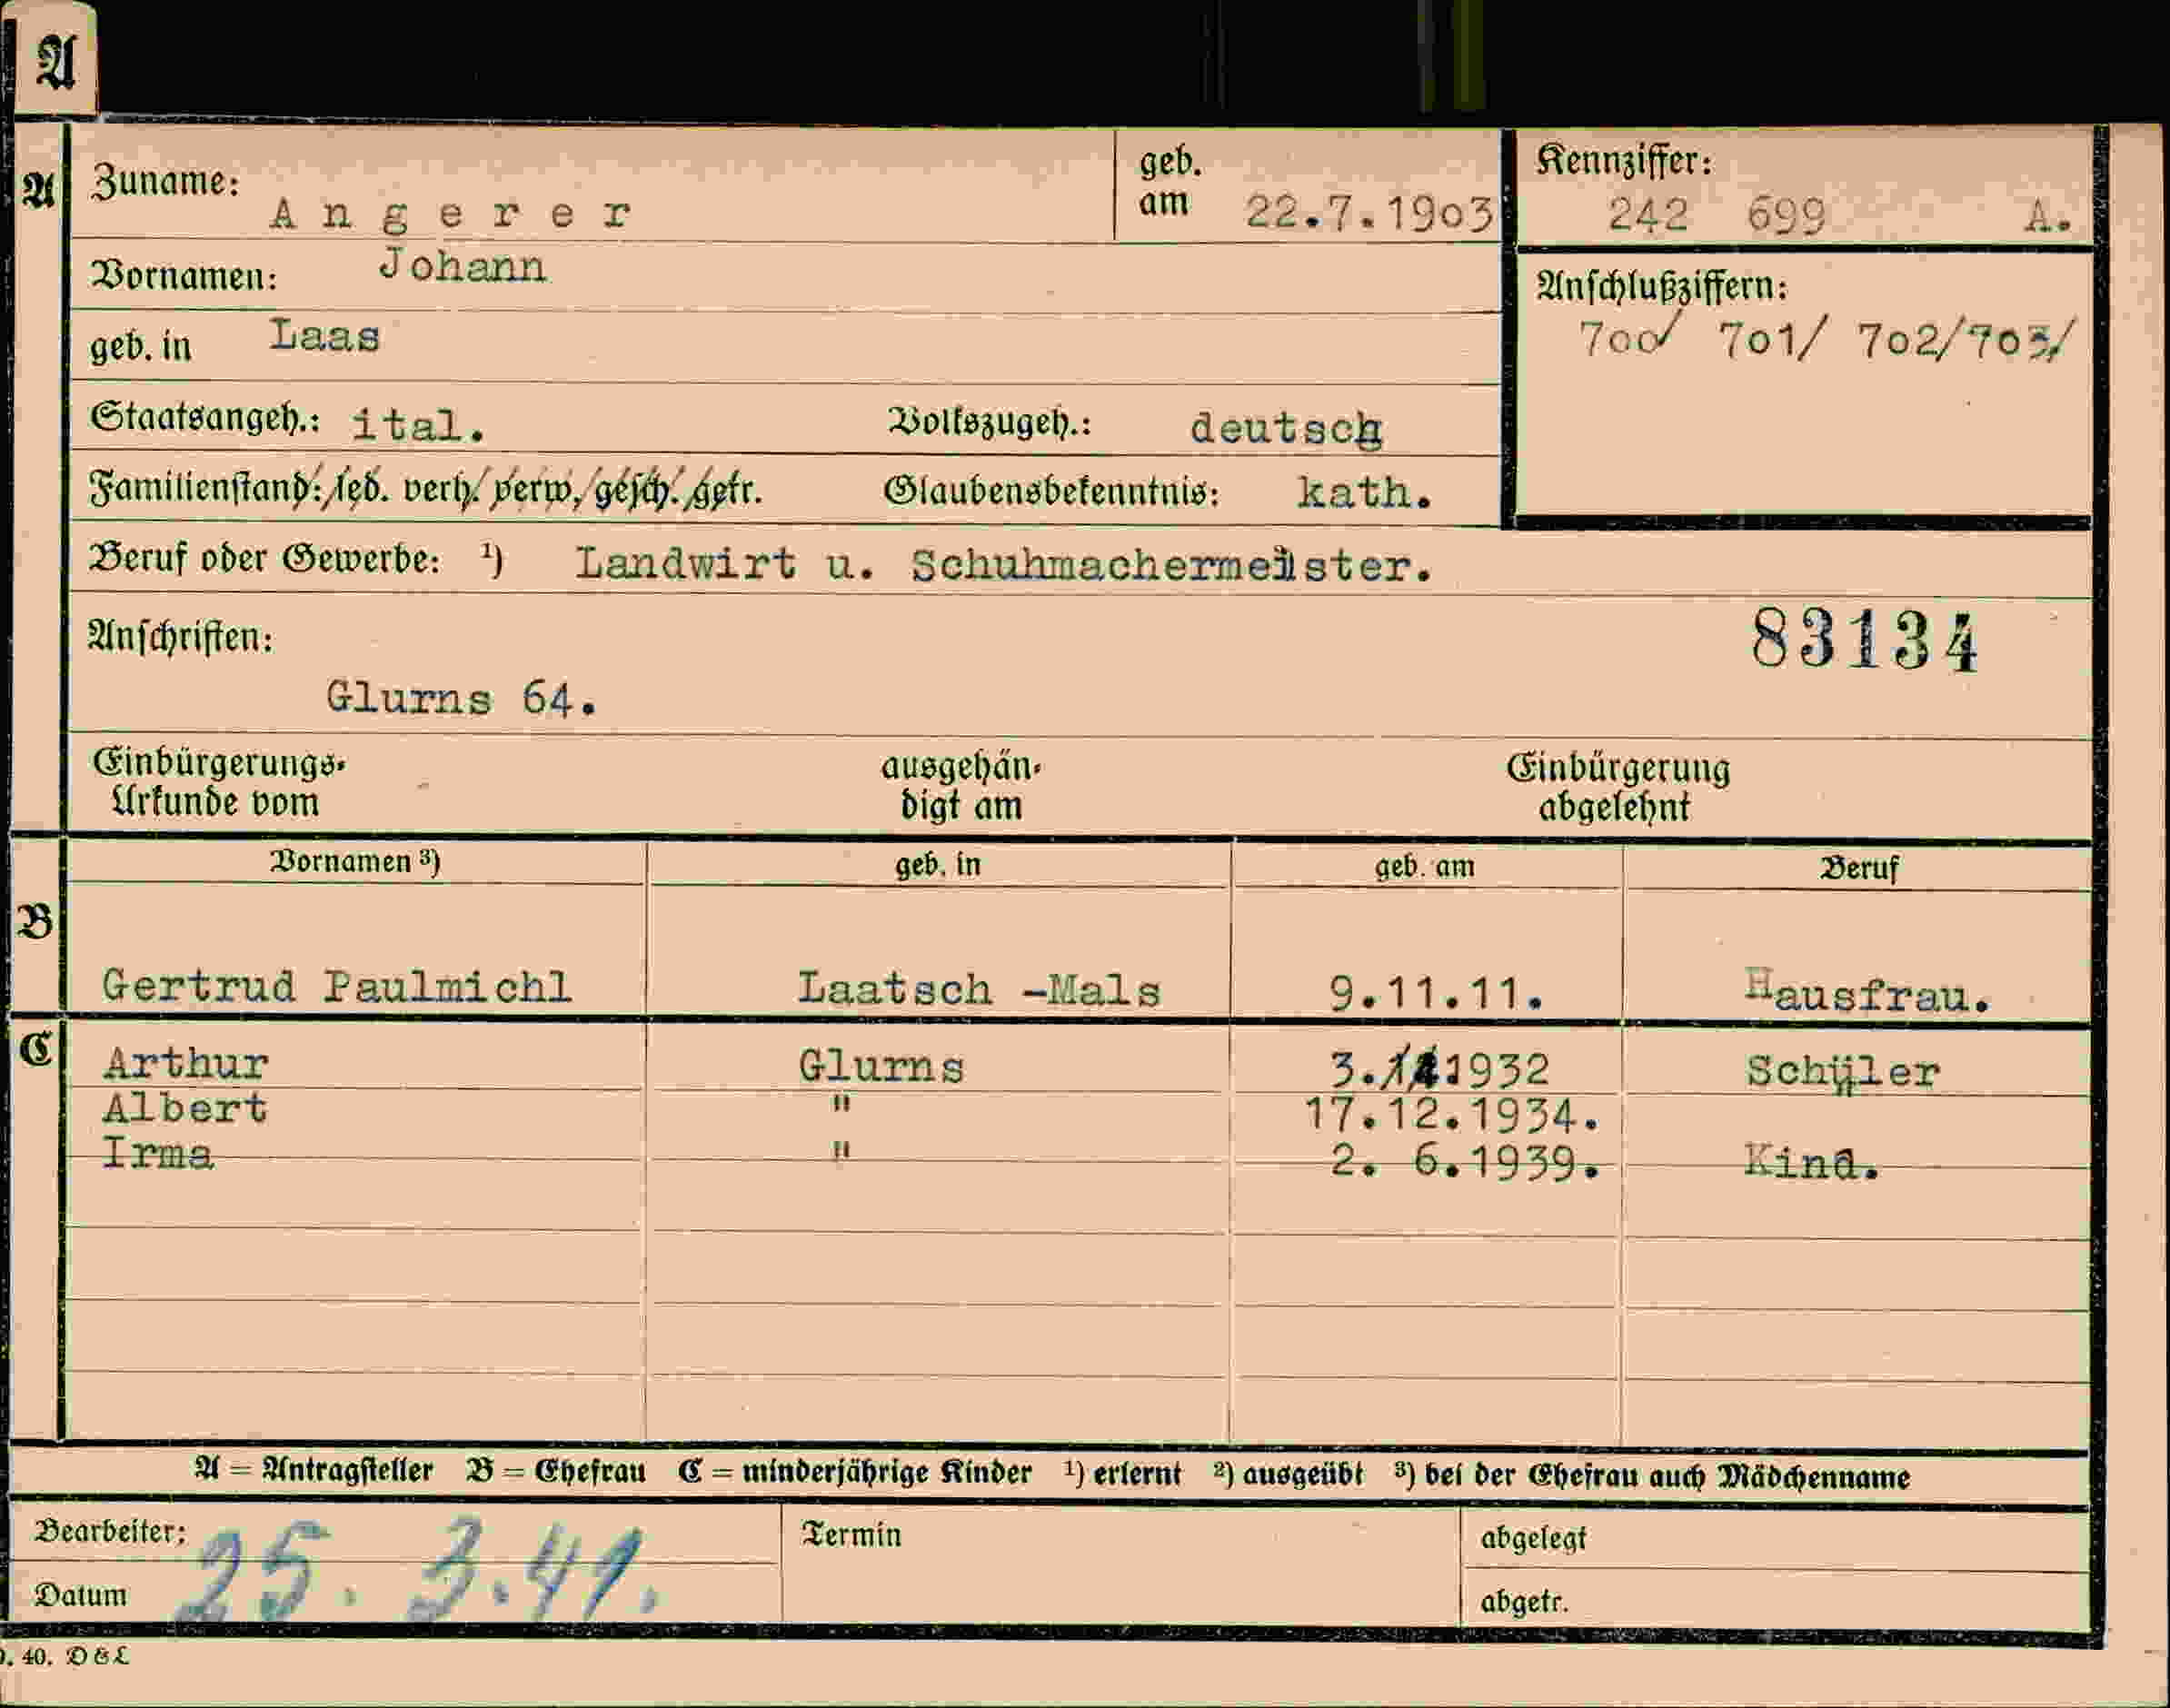 A
A
Zuname: Angerer
geb. am 22.7.1903
Kennziffer:
242 699 A.
Vornamen: Johann
Anschlußziffern:
700/ 701/ 702/703/
geb. in Laas
Staatsangeh.: ital. Volkszugeh.: deutsch
Familienstand: led. verh. verw. gesch. getr. Glaubensbekenntnis: kath.
Beruf oder Gewerbe: ¹) Landwirt u. Schuhmachermeister.
Anschriften:
83134
Glurns 64.
Einbürgerungs-Urkunde vom
ausgehändigt am
Einbürgerung abgelehnt
Vornamen ³) geb. in geb. am Beruf
B
Gertrud Paulmichl Laatsch -Mals 9.11.11. Hausfrau.
C
Arthur Glurns 3. 1932 Schüler
Albert " 17.12.1934.
Irma " 2. 6.1939. Kind.
A = Antragsteller B = Ehefrau C = minderjährige Kinder ¹) erlernt ²) ausgeübt ³) bei der Ehefrau auch Mädchenname
Bearbeiter: Termin abgelegt
Datum 25. 3.41. abgetr.
. 40. D & L